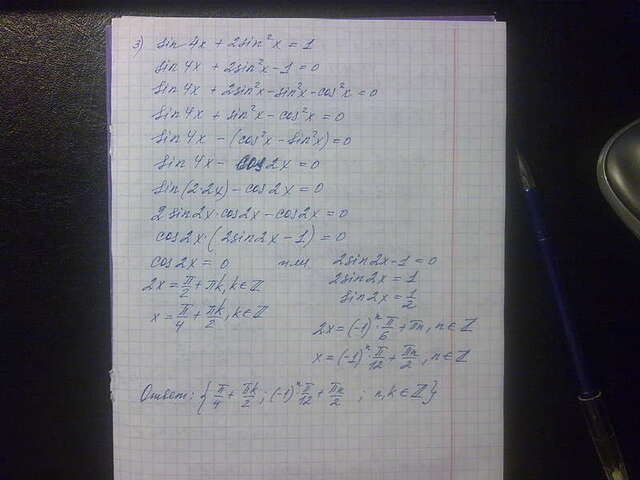 3) sin 4x + 2sin²x = 1
sin 4x + 2sin²x - 1 = 0
sin 4x + 2sin²x - sin²x - cos²x = 0
sin 4x + sin²x - cos²x = 0
sin 4x - (cos²x - sin²x) = 0
sin 4x - cos 2x = 0
sin(2·2x) - cos 2x = 0
2 sin2x·cos2x - cos2x = 0
cos2x·(2sin2x - 1) = 0
cos 2x = 0 или 2sin2x-1 = 0
2x = π/2 + πk, k∈ℤ 2sin2x = 1
x = π/4 + πk/2, k∈ℤ sin2x = 1/2
2x = (-1)ⁿ·π/6 + πn, n∈ℤ
x = (-1)ⁿ·π/12 + πn/2, n∈ℤ
Ответ: {π/4 + πk/2; (-1)ⁿ·π/12 + πn/2; n, k∈ℤ}